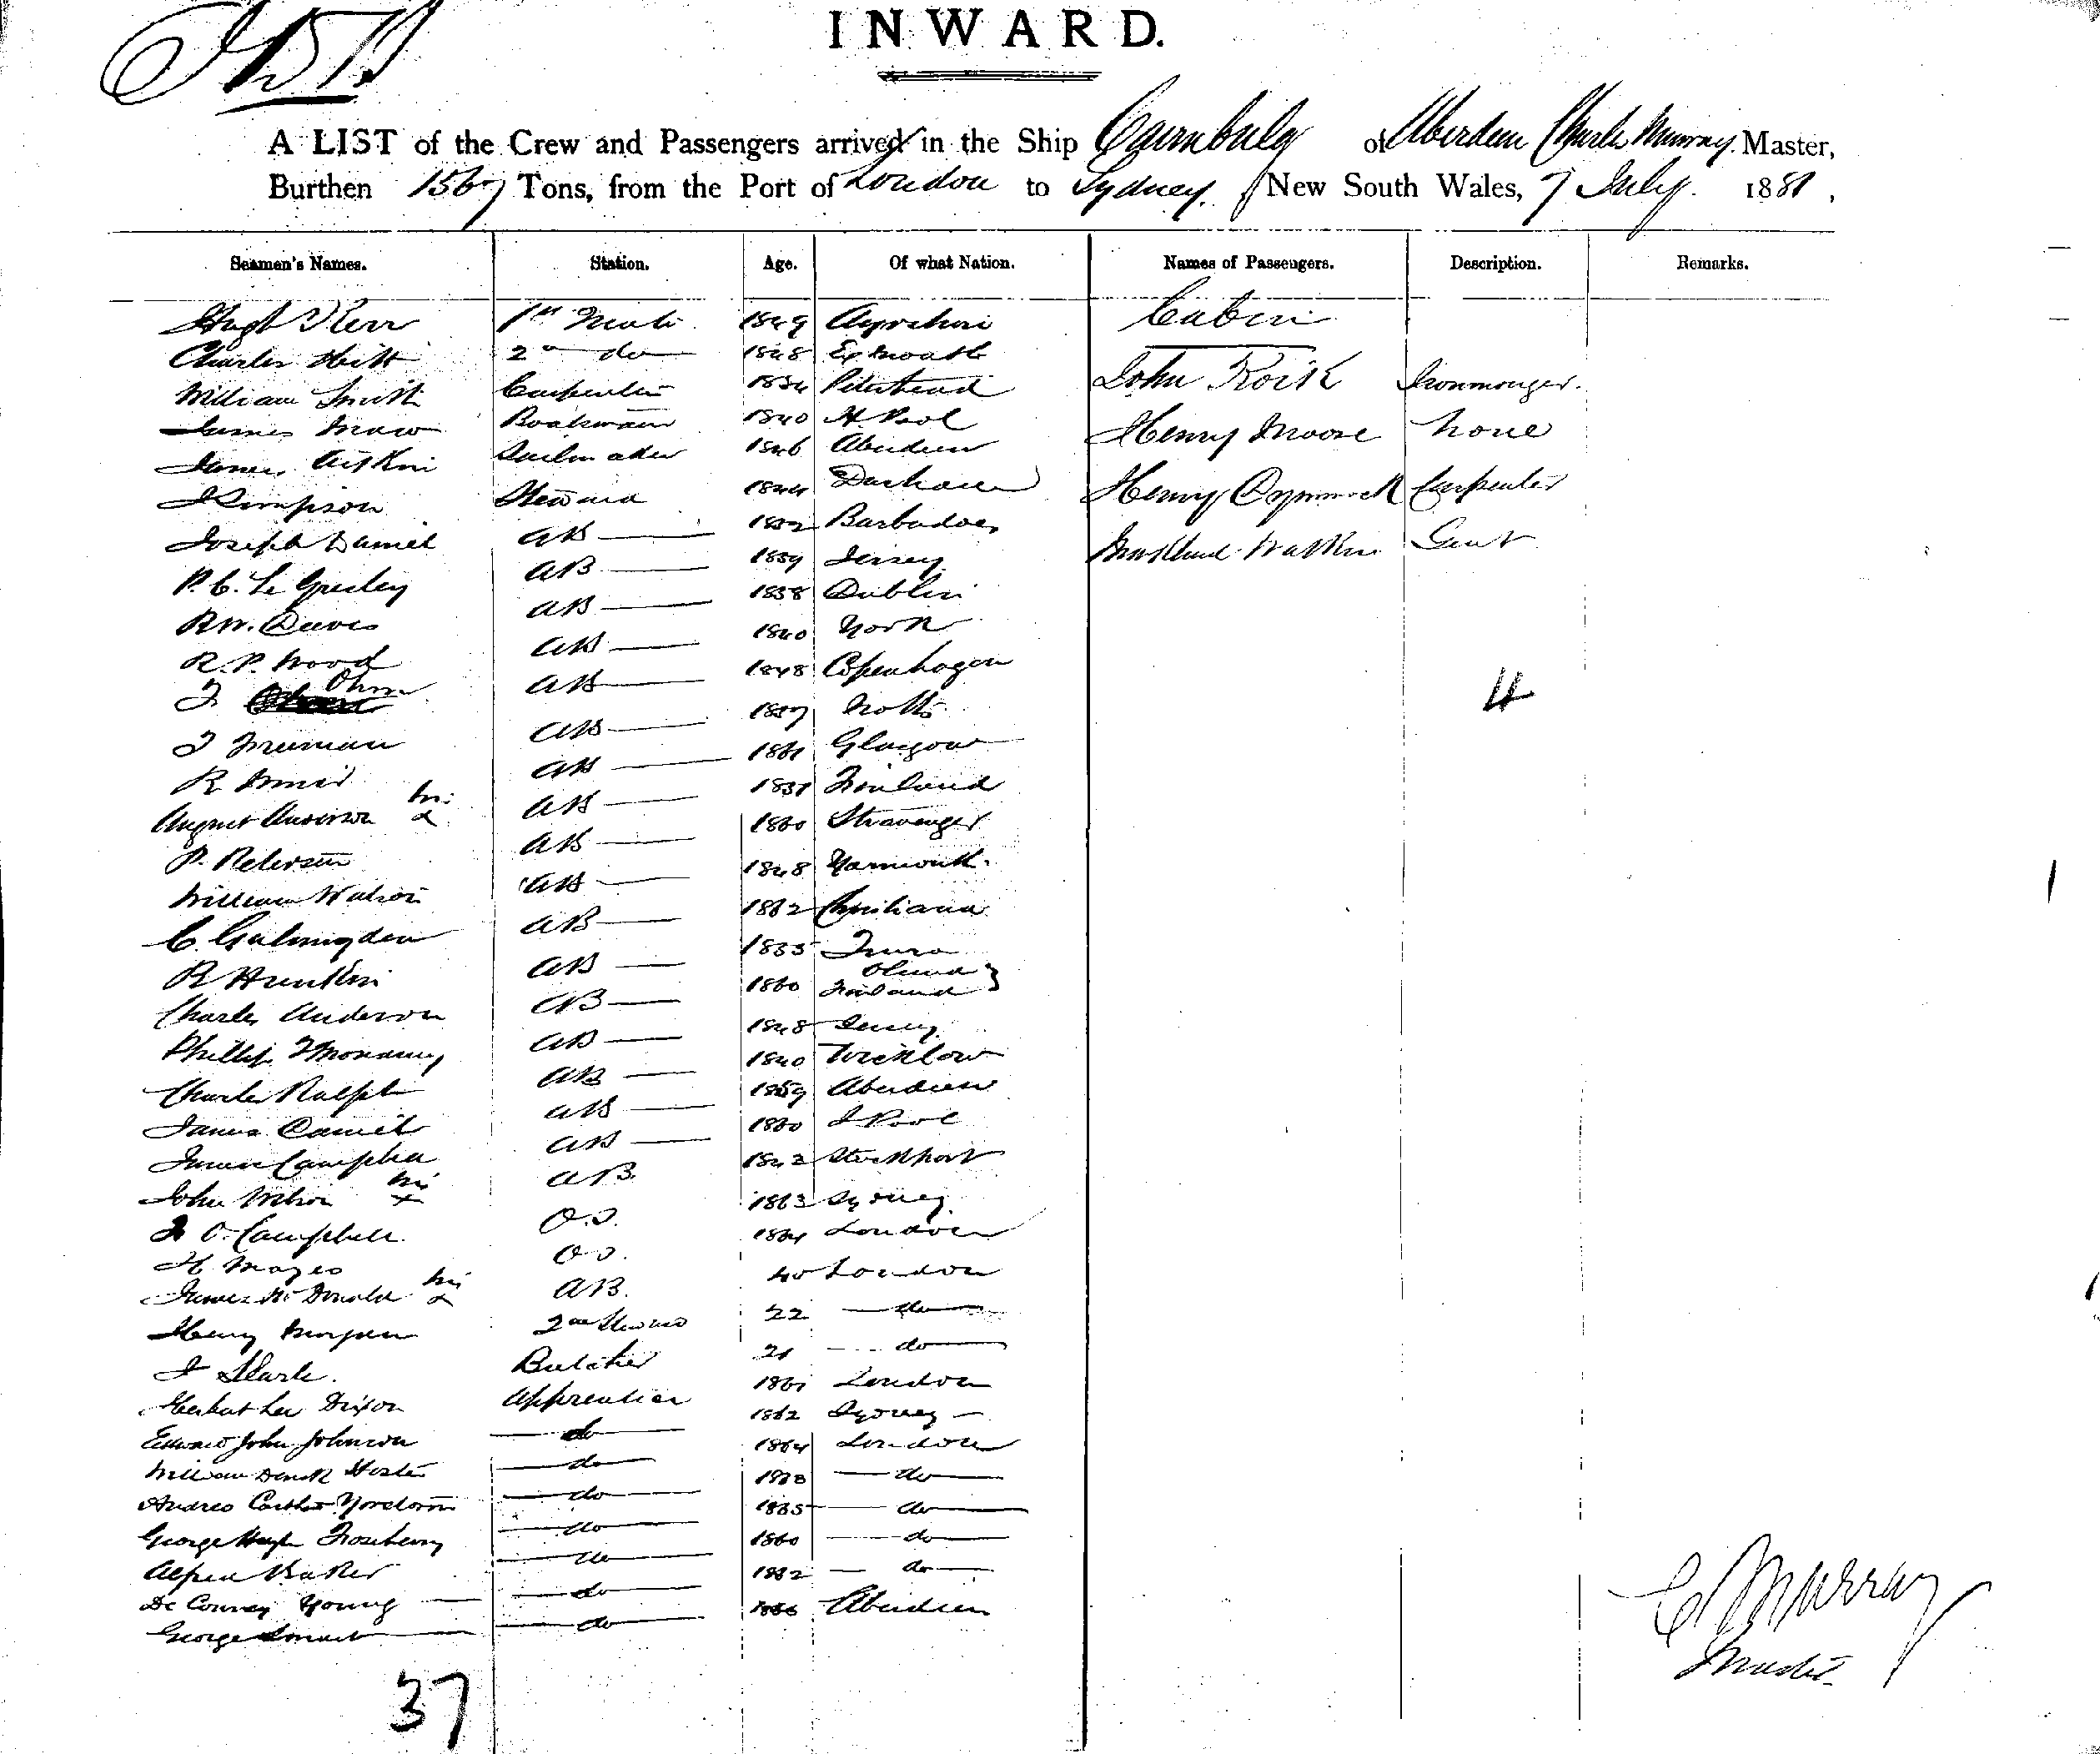 INWARD.
A LIST of the Crew and Passengers arrived in the Ship Cairnbulg of Aberdeen Charles Murray Master,
Burthen 1567 Tons, from the Port of London to Sydney, New South Wales, 7 July 1881,
Seamen's Names. Station. Age. Of what Nation. Names of Passengers. Description. Remarks.
Cabin
Hugh Kerr 1st Mate 1849 Ayrshire
Charles 2nd do 1848 Exmouth John Roisk Ironmonger.
William Smith Carpenter 1834 Peterhead
James Maw Boatswain 1840 H. Pool Henry Moore None
James Aitken Sailmaker 1846 Aberdeen
Simpson Steward 1844 Durham Henry Carpenter
Joseph Daniel AB 1832 Barbadoes
P. C. Le Gresley AB 1859 Jersey Watkin Gent
R. W. Davis AB 1838 Dublin
R. P. Wood AB 1840 York
J. Ohm AB 1848 Copenhagen
4
J Freeman AB 1857 Notts
R. AB 1861 Glasgow
August Anderson x AB 1837 Finland
P. Petersen AB 1860 Stravanger
William Watson AB 1848 Yarmouth.
C. AB 1862 Christiana
R AB 1835 Truro
Charles Anderson AB 1860 Finland
Phillip AB 1848 Jersey
Charles Ralph AB 1840 Wicklow
James Daniel AB 1859 Aberdeen
James Campbell AB 1860 L Pool
John x AB 1842 Stockport
O. Campbell O.S. 1863 Sydney
H. Mayes O.S. 1864 London
James McDonald x AB. 40 London
Henry Morgan 2nd Steward 22 do
Butcher 21 do
Herbert Lee Dixon Apprentice 1861 London
Edward John Johnson do 1862 Sydney
William do 1864 London
Andrew do do
George Hugh do 1865 do
Alfred Baker do 1860 do
De Courcy Young do 1862 do
George Smart do Aberdeen
37
C Murray
Master